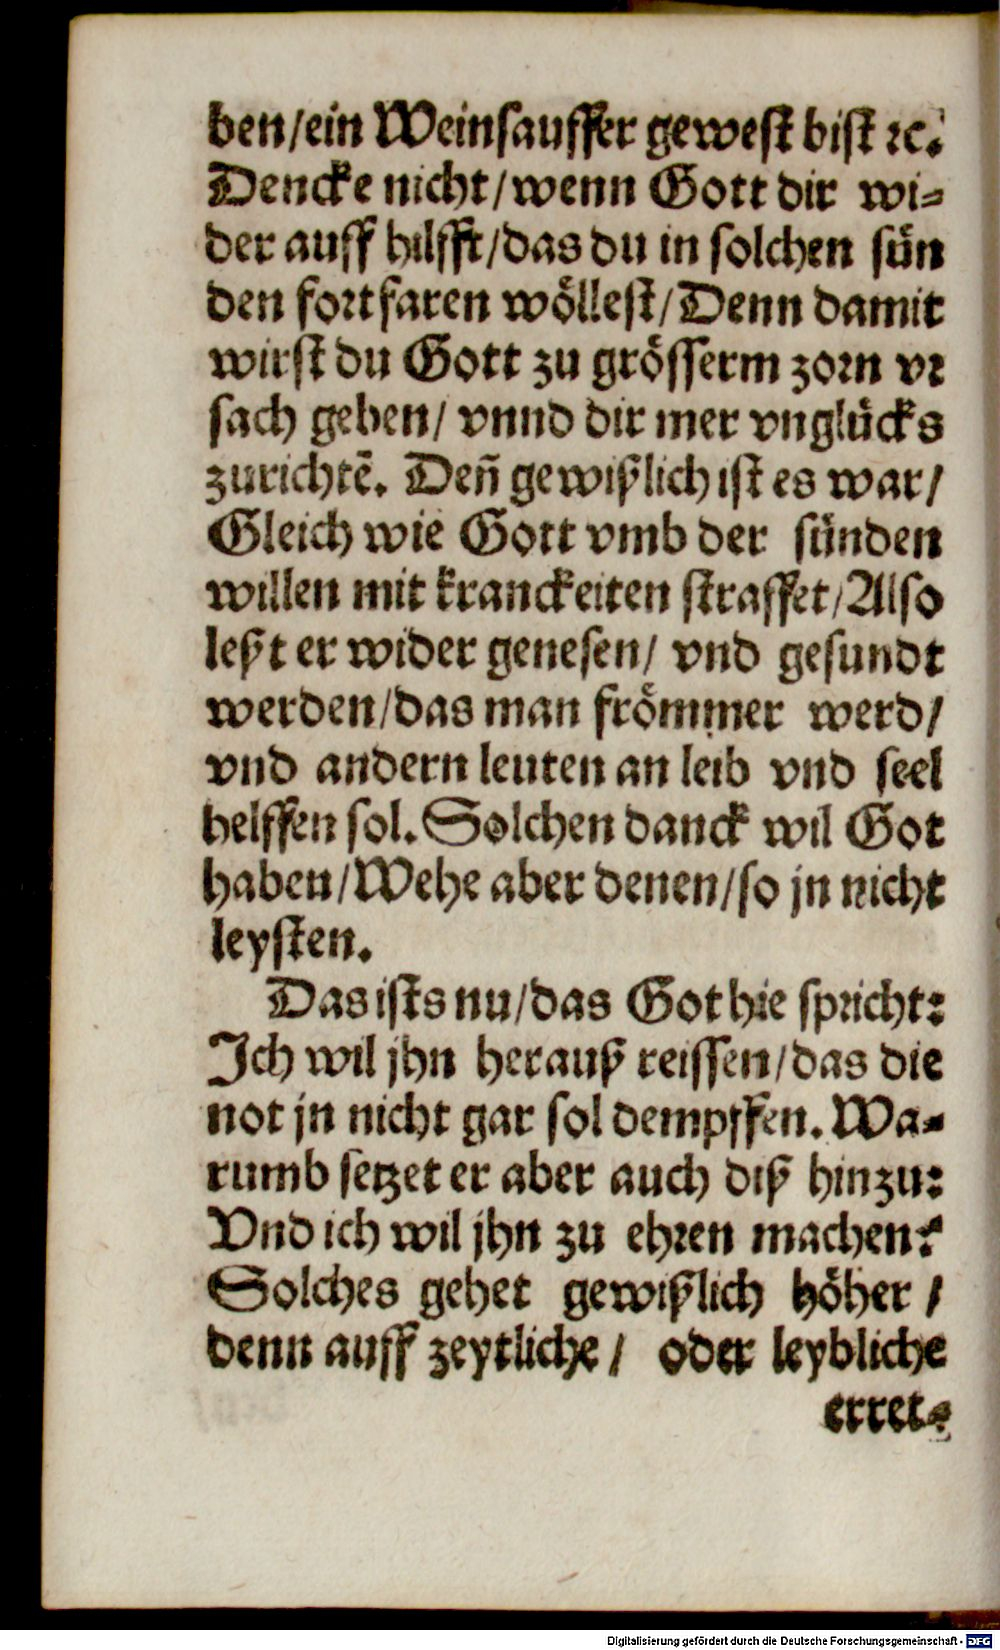 ben/ein Weinsauffer gewest bist ꝛc.
Dencke nicht/wenn Gott dir wi-
der auff hilfft/das du in solchen sün
den fortfaren wöllest/Denn damit
wirst du Gott zu grösserm zorn vr
sach geben/ vnnd dir mer vnglücks
zurichtẽ. Deñ gewißlich ist es war/
Gleich wie Gott vmb der sünden
willen mit kranckeiten straffet/Also
leßt er wider genesen/ vnd gesundt
werden/das man frömmer werd/
vnd andern leuten an leib vnd seel
helffen sol. Solchen danck wil Got
haben/Wehe aber denen/so jn nicht
leysten.
Das ists nu/das Got hie spricht:
Ich wil jhn herauß reissen/das die
not jn nicht gar sol dempffen. Wa-
rumb setzet er aber auch diß hinzu:
Vnd ich wil jhn zu ehren machen?
Solches gehet gewißlich höher /
denn auff zeytliche/ oder leybliche
erret-
Digitalisierung gefördert durch die Deutsche Forschungsgemeinschaft - DFG